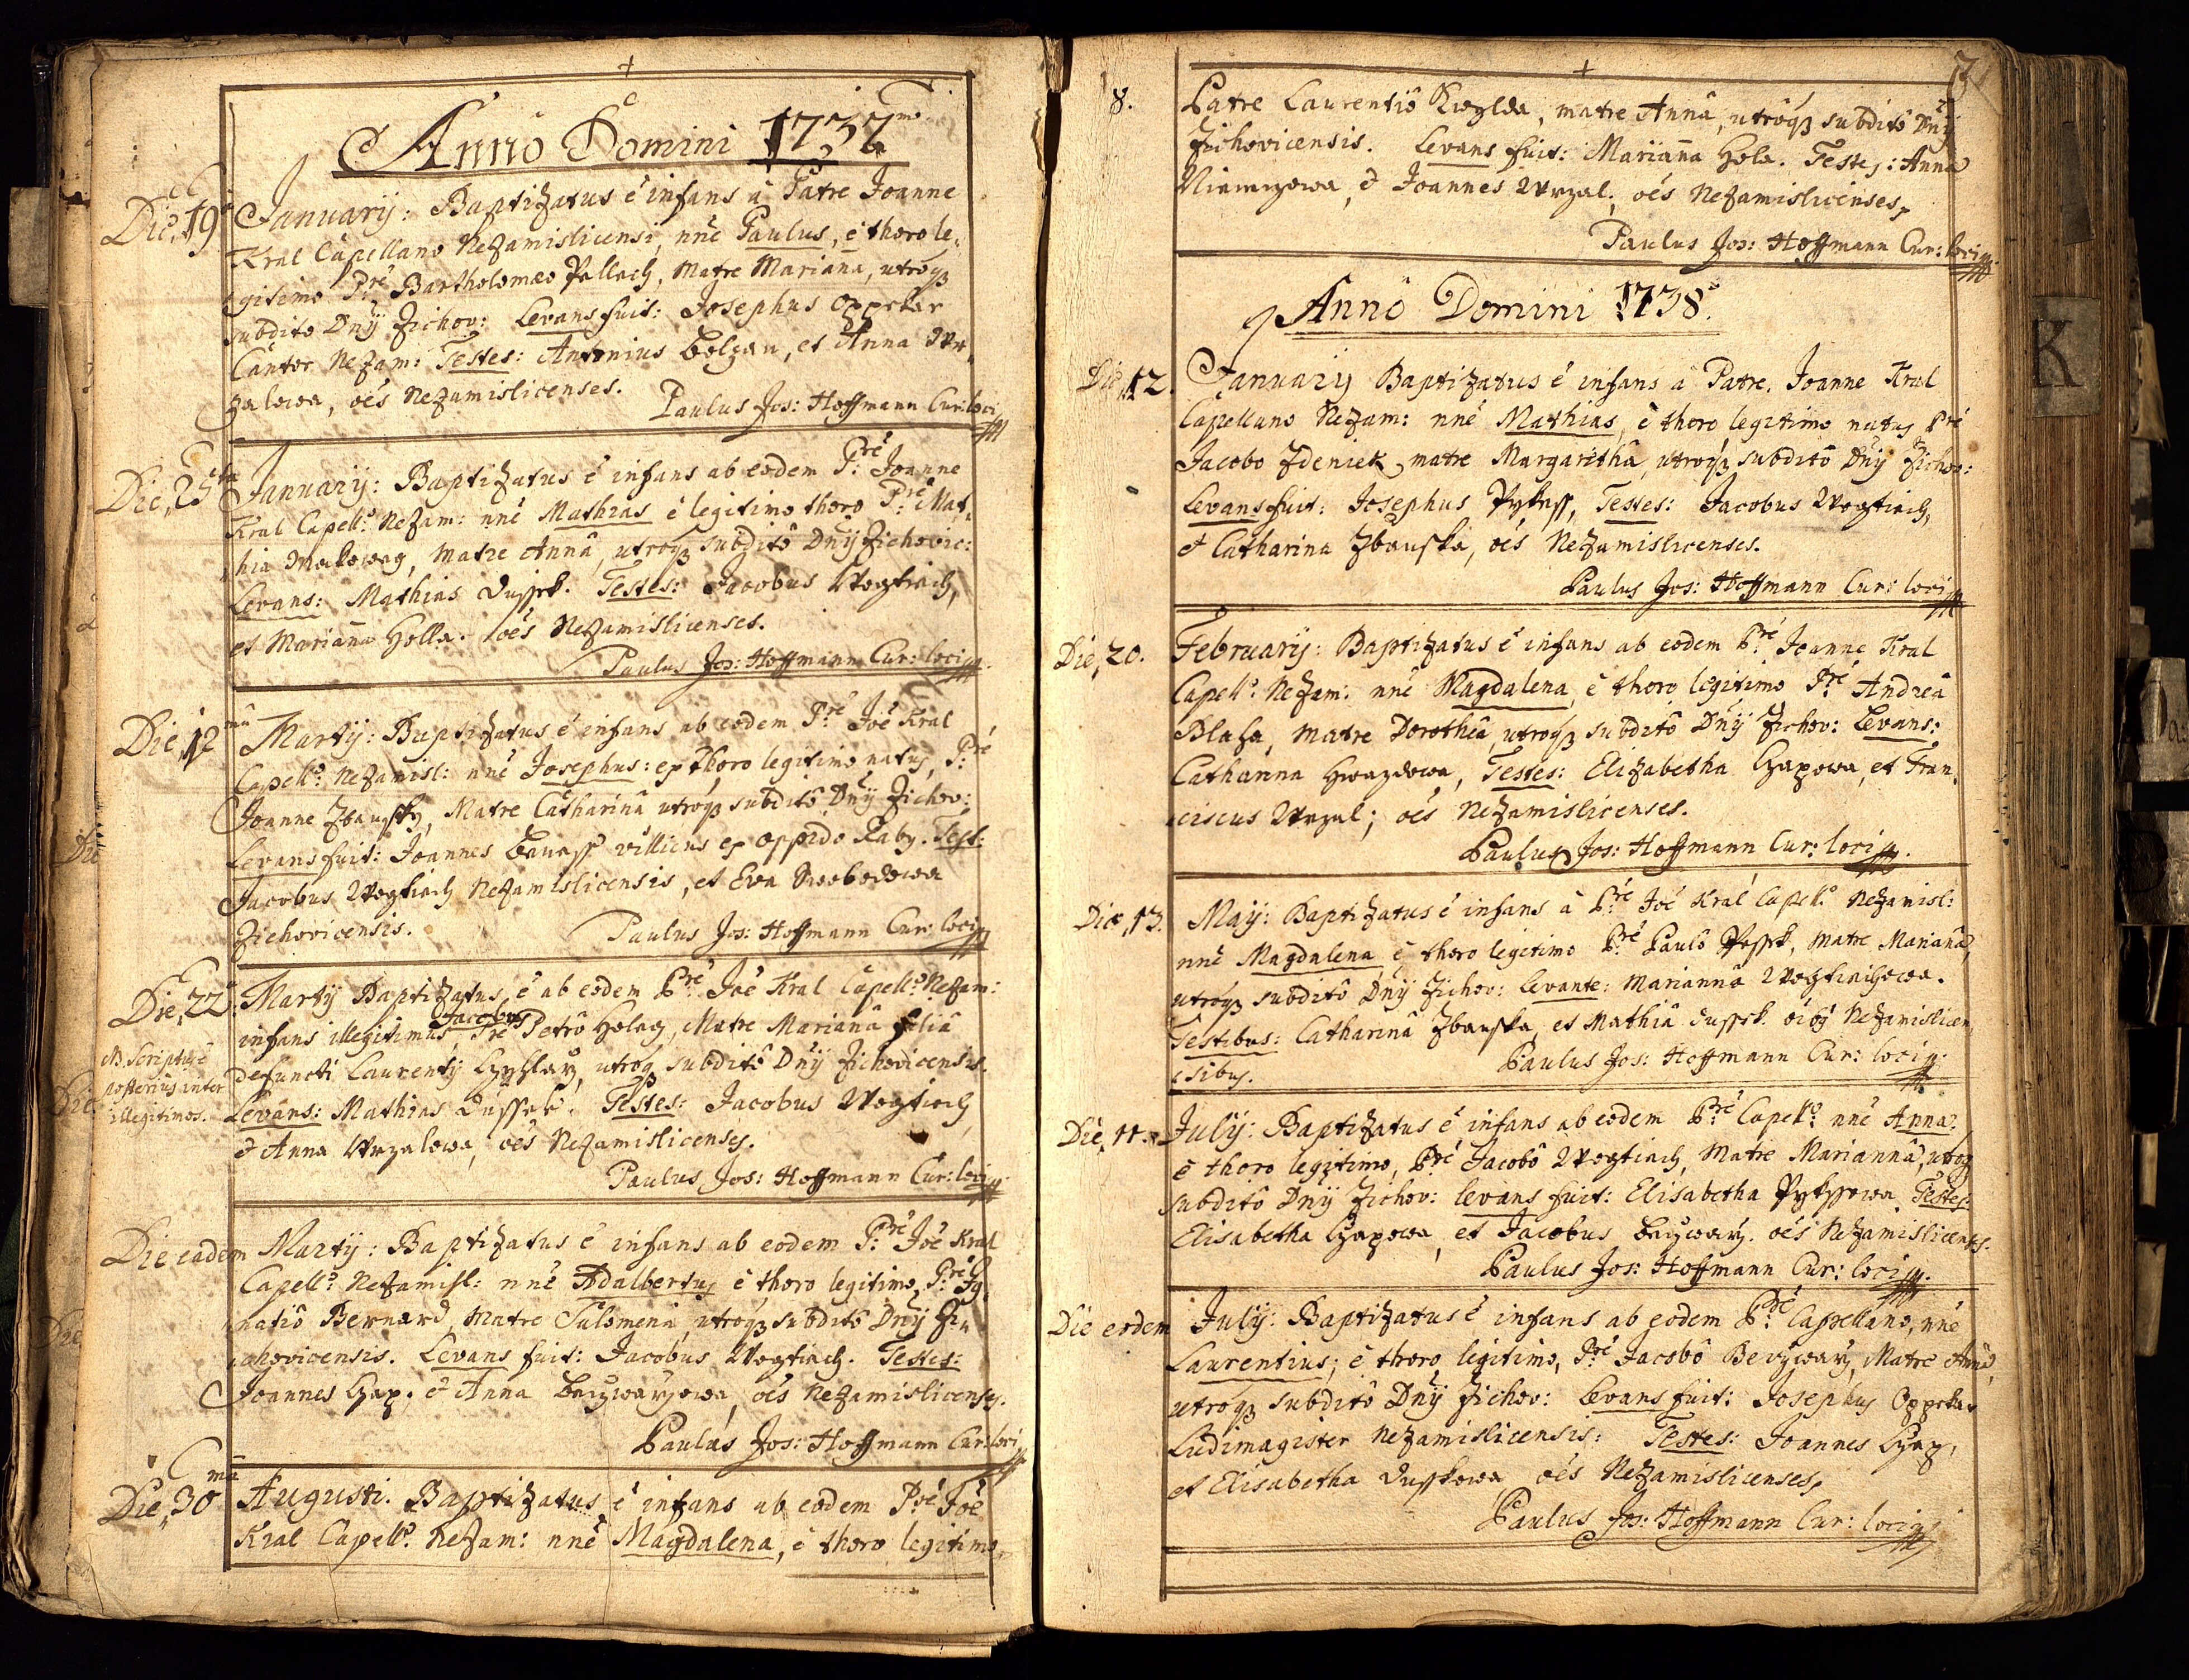 Anno Domini 1737mo
Die 19 Januarij: Baptizatus ē infans à Patre Joanne
Kral Capellano Nezamislicensi, nnē Paulus, è thoro le„
gitimo Pre Bartholomæo Pallach, Matre Mariana, utroq3
subdito Dnij Zichov: Levans fuit: Josephus Oppeker
Cantor Nezam: Testes: Antonius Bolzan, et Anna Wr„
zalowa, oēs Nezamislicenses.
Paulus Jos: Hoffmann Cur: loci
Die 25ta Januarij: Baptizatus ē infans ab eodem P:re Joanne
Kral Capello Nezam: nnē Mathias è legitimo thoro P:re Mat„
hia Makoway, Matre Annâ, utroq3 subditô Dnij Zichovic:
Levans: Mathias Dussek. Testes: Jacobus Wogtiech,
et Marianna Holla. oēs Nezamislicenses.
Paulus Jos: Hoffmann Cur: loci
Die 12ma Martij: Baptizatus ē infans ab eodem P:re Joē Kral
Capello Nezamisl: nnē Josephus: ex thoro legitimo natus, P:re
Joanne Zbausky, Matre Catharinâ utroq3 subditô Dnij Zichov:
Levans fuit: Joannes villicus ex oppido Raby. Test:
Jacobus Wogtiech Nezamislicensis, et Eva Swobodowa
Zichovicensis. Paulus Jos: Hoffmann Cur: loci
Die 22 Martij Baptizatus ē ab eodem Pre Joē Kral Capello Nezam:
Jacobus
infans illegitimus, Pre Petrô Holay, Matre Marianâ filiâ
NB. Scriptus ē
defuncti Laurentij utroq3 subditô Dnij Zichovicensis.
posterius inter
Levans: Mathias Dussek. Testes: Jacobus Wogtiech
illegitimos.
& Anna Wrzalowa, oēs Nezamislicenses.
Paulus Jos: Hoffmann Cur: loci
Die eadem Martij: Baptizatus ē infans ab eodem P:re Joē Kral
Capello Nezamisl: nnē Adalbertus è thoro legitimo, P:re Ig„
natiô Bernard, Matre Salomenâ, utroq3 subditô Dnij Zi„
chovicensis. Levans fuit: Jacobus Wogtiech. Testes:
Joannes Czap. & Anna oēs Nezamislicenses.
Paulus Jos: Hoffmann Cur: loci
Die 30ma Augusti. Baptizatus ē infans ab eodem Pre Joē
Kral Capello Nezam: nnē Magdalena, è thoro legitimo
3
8. Patre Laurentiô matre Annâ, utroq3 subditô Dnij
Zichovicensis. Levans fuit: Marianna Hola. Testes: Anna
& Joannes Wrzal; oēs Nezamislicenses.
Paulus Jos: Hoffmann Cur: loci
Annô Domini 1738.
Die 12. Januarij Baptizatus ē infans à Patre Joanne Kral
Capellano Nezam: nnē Mathias, è thoro legitimo natus Pre
Jacobo Zdeniek, matre Margarithâ, utroq3 subditô Dnij Zichov:
Levans fuit: Josephus Pykass, Testes: Jacobus Wogtiech,
& Catharina Zbauska, oēs Nezamislicenses.
Paulus Jos: Hoffmann Cur: loci
Die 20. Februarij: Baptizatus ē infans ab eodem Pre Joanne Kral
Capello Nezam: nnē Magdalena, è thoro legitimo Pre Andreâ
Blaha, Matre Dorothêâ, utroq3 subditô Dnij Zichov: Levans:
Catharina Hwazdowa, Testes: Elizabetha Czapowa, et Fran„
ciscus Wrzal; oēs Nezamislicenses.
Paulus Jos: Hoffmann Cur: loci
Die 13. Maij: Baptizatus ē infans à Pre Joē Kral Capello Nezamisl:
nnē Magdalena è thoro legitimo Pre Paulô Matre Marianâ,
utroq3 subditô Dnij Zichov: Levante: Mariannâ Wogtiechowa.
Testibus: Catharinâ Zbauska, et Mathiâ Dussek. oibg Nezamislicen„
sibus. Paulus Jos: Hoffmann Cur: loci
Die 11. Julij: Baptizatus ē infans ab eodem Pre Capello nnē Anna.
è thoro legitimo, Pre Jacobô Wogtiech, Matre Mariannâ, utroq3
subditô Dnij Zichov: Levans fuit: Elisabetha Pykassowa Testes:
Elisabetha Czapowa, et Jacobus oēs Nezamislicenses.
Paulus Jos: Hoffmann Cur: loci
Die eodem Julij: Baptizatus ē infans ab eodem Pre Capellano, nnē
Laurentius, è thoro legitimo, Pre Jacobô Matre Annâ,
utroq3 subditô Dnij Zichov: Levans fuit: Josephus Oppeker
Ludimagister Nezamislicensis: Testes: Joannes Czap,
et Elisabetha Dusskowa oēs Nezamislicenses.
Paulus Jos: Hoffmann Cur: loci
K